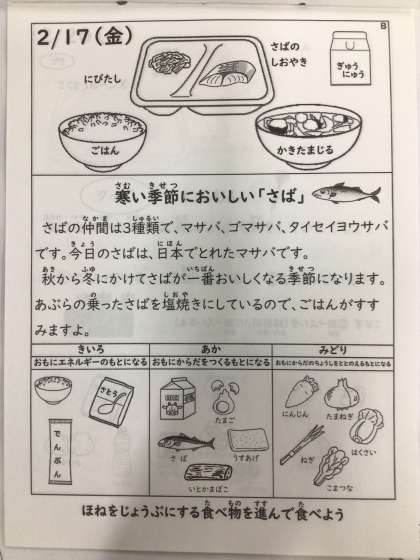 2/17(金)
B
にびたし
さばの
しおやき
ぎゅう
にゅう
ごはん
かきたまじる
寒い季節においしい「さば」
さばの仲間は3種類で、マサバ、ゴマサバ、タイセイヨウサバ
です。今日のさばは、日本でとれたマサバです。
秋から冬にかけてさばが一番おいしくなる季節になります。
あぶらの乗ったさばを塩焼きにしているので、ごはんがすす
みますよ。
きいろ
おもにエネルギーのもとになる
さとう
でんぷん
あか
おもにからだをつくるもとになる
たまご
さば
うすあげ
いとかまぼこ
みどり
おもにからだのちょうしをととのえるもとになる
にんじん
たまねぎ
はくさい
ねぎ
こまつな
ほねをじょうぶにする食べ物を進んで食べよう